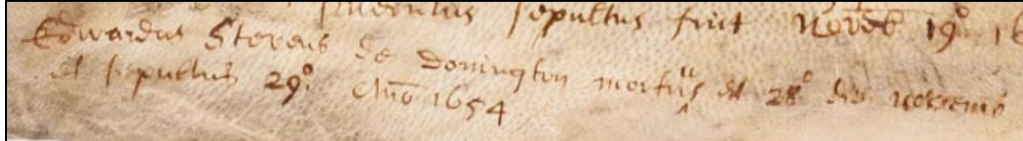 sepultus fuit Novēb 19º 16
Edwardus Stevens de Donington mortuus est 28º die Novemb
et sepultus 29º. Año 1654